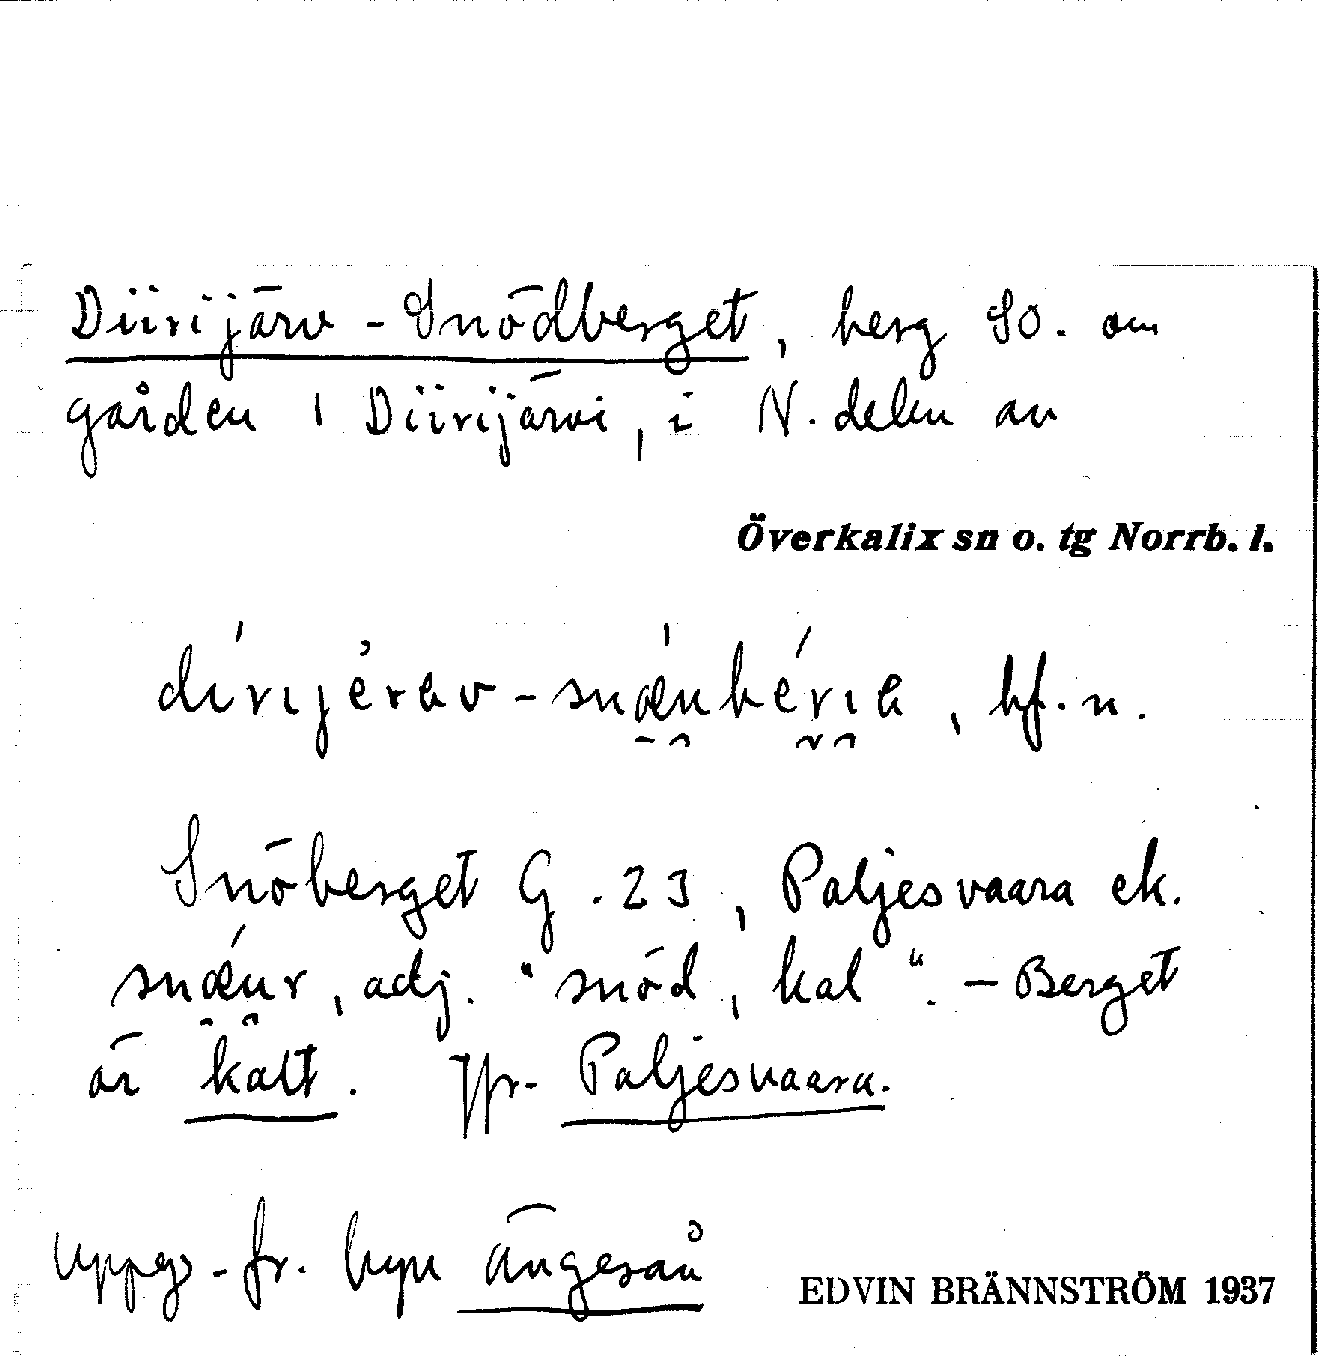 Diirijärv-Snödberget, berg SO. om
gården 1 Diirijärvi, i N. delen av
Överkalix sn o. tg Norrb. l.
dírijèrav-snǽubéria, bf. n.
Snöberget G. 23, Paljesvaara ek.
snǽur, adj. "snöd, kal". – Berget
är kalt. Jfr. Paljesvaara.
Uppg. fr. byn Ängesån
EDVIN BRÄNNSTRÖM 1937